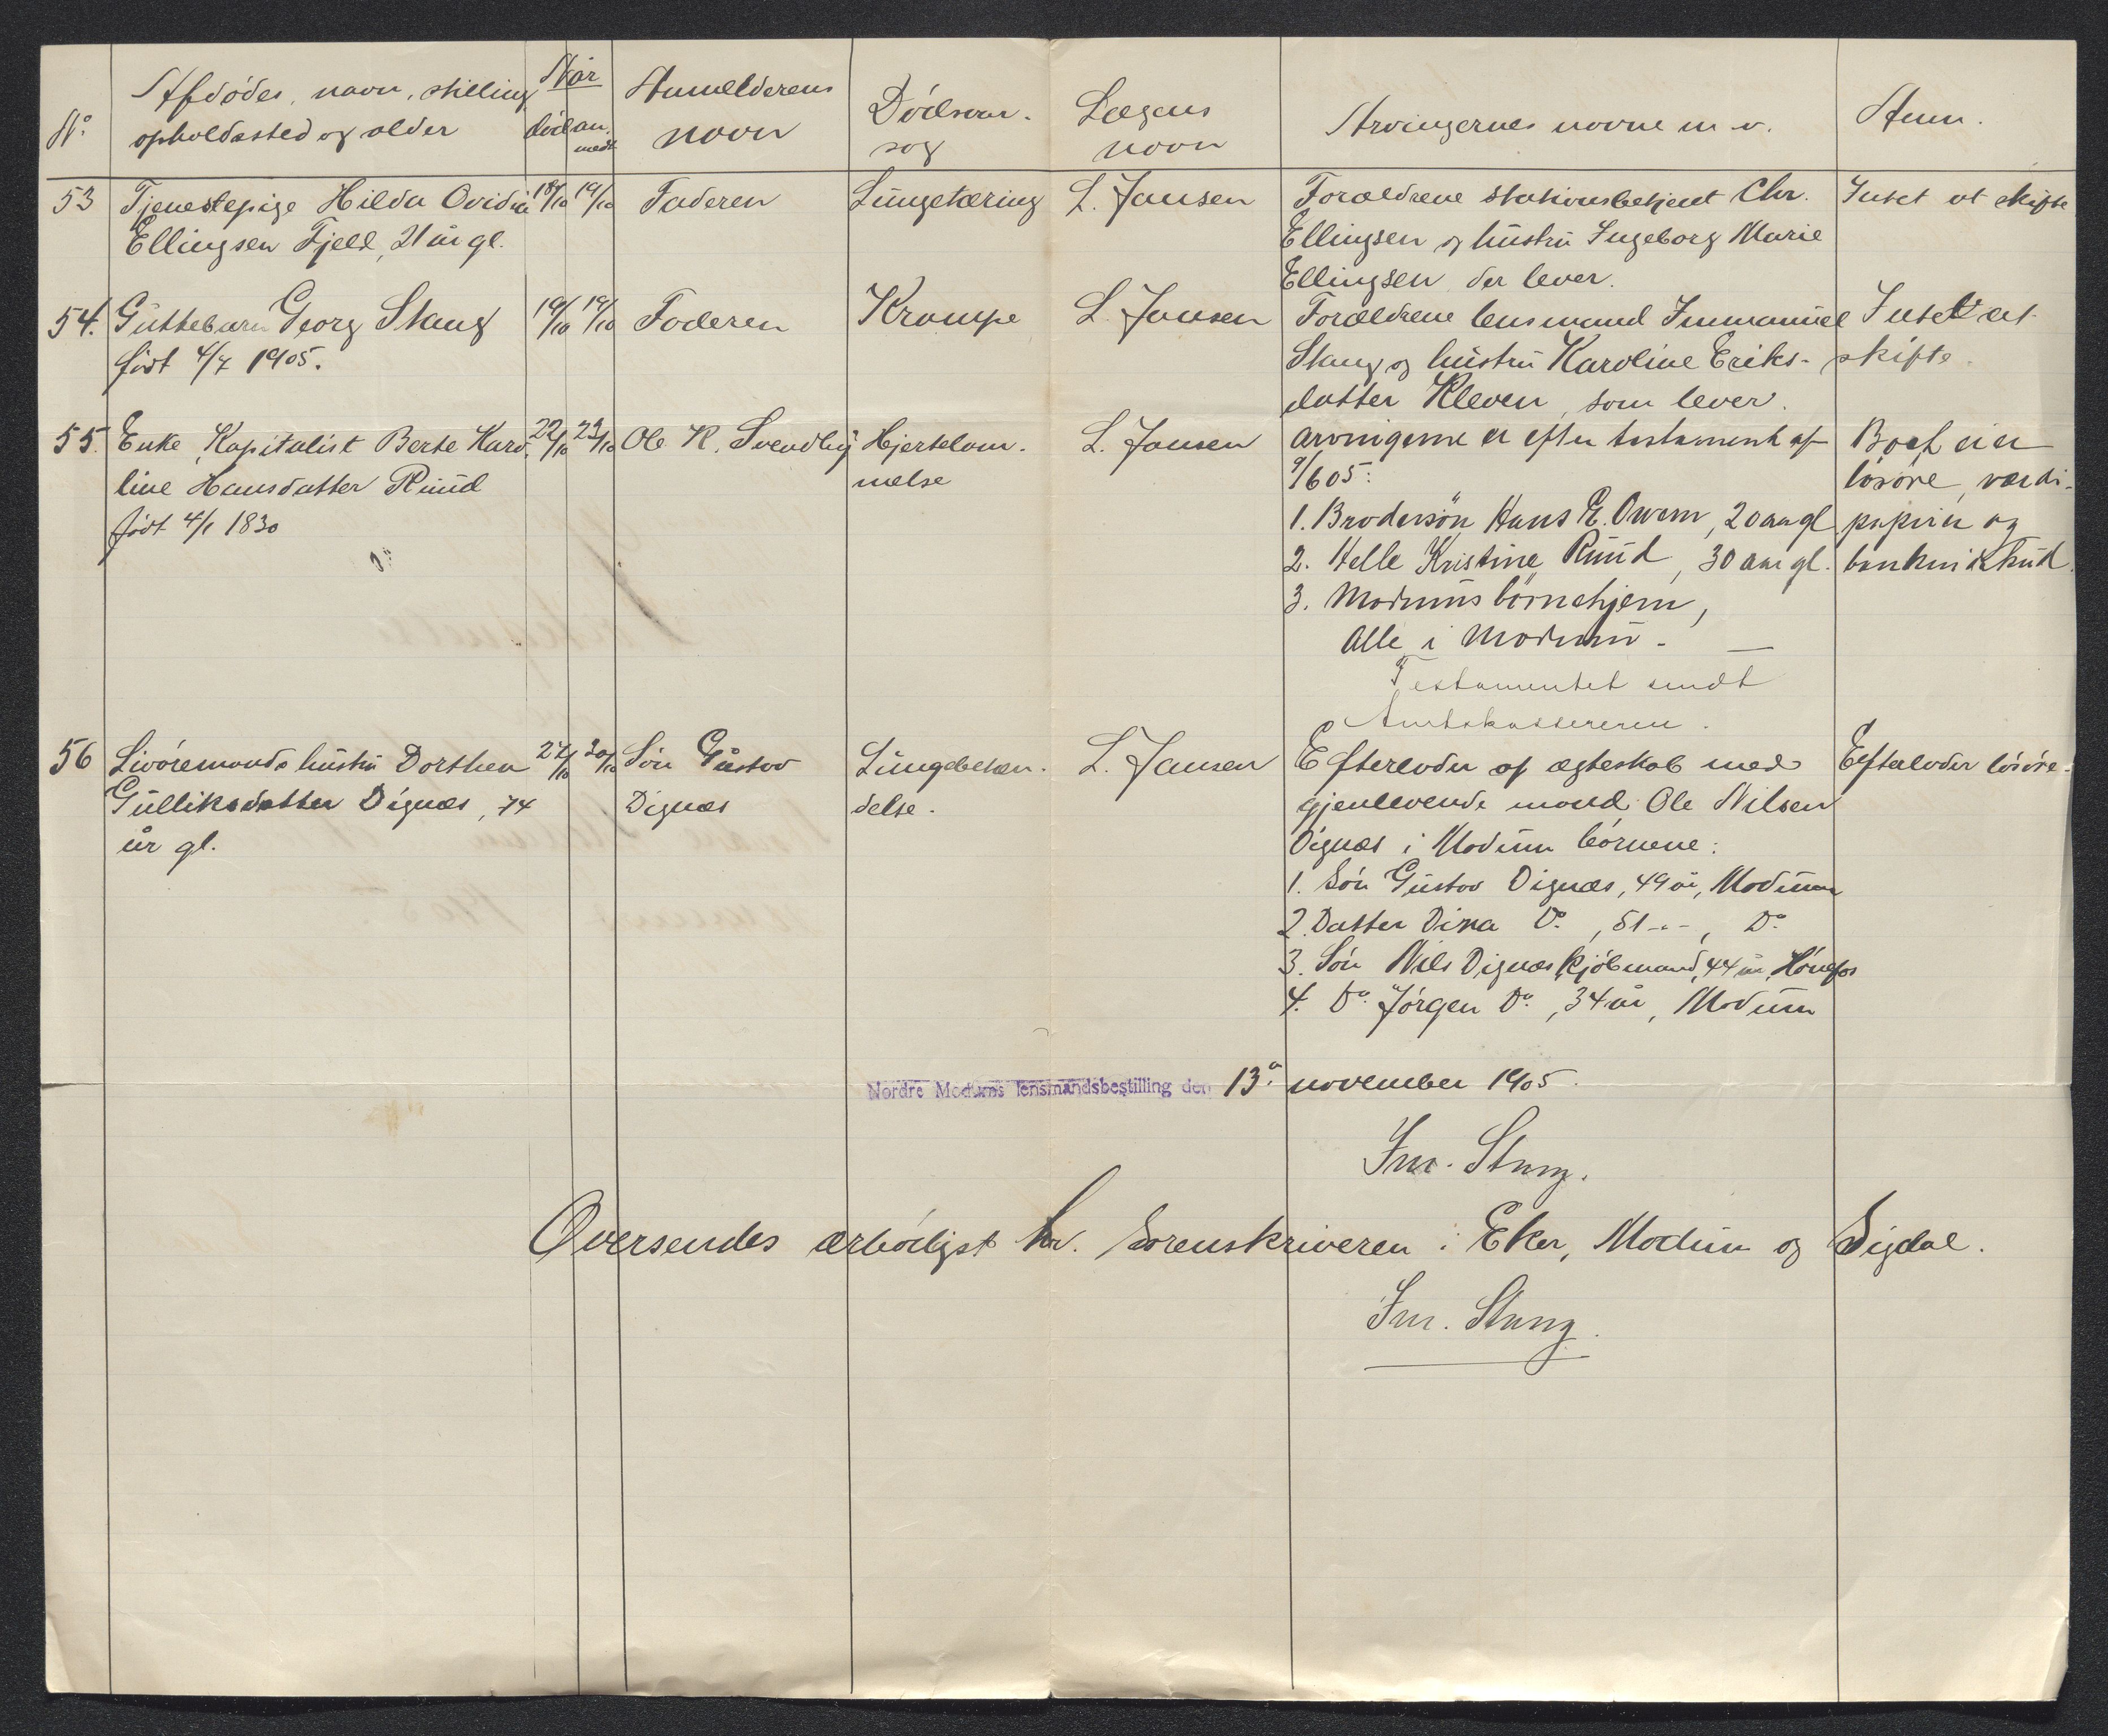 No
Afdødes navn, stilling
opholdssted og alder
Når
død
an-
meldt
Anmelderens
navn
Dødsaar-
sag
Lægens
navn
Arvingernes navne m. v.
Anm.
53
Tjenestepige Hilda Ovidia
Ellingsen Fjeld, 21 år gl.
18/10
19/10
Faderen
Lungetæring
L. Jansen
Forældrene stationsbetjent Chr.
Ellingsen og hustru Ingeborg Marie
Ellingsen der lever.
Intet at skifte
54.
Guttebarn Georg Stang
født 4/7 1905.
19/10
19/10
Faderen
Krampe
L. Jansen
Forældrene lensmand Immanuel
Stang og hustru Karoline Eriks-
datter Kleven, som lever.
Intet at
skifte.
55.
Enke, Kapitalist Berte Karo-
line Hansdatter Ruud
født 4/1 1830
22/10
23/10
Ole K. Svendby
Hjertelam-
melse
L. Jansen
Arvingerne er efter testament af
9/6 05:
1. Brodersøn Hans E. Owern, 20 aar gl
2. Helle Kristine Ruud, 30 aar gl.
3. Modums børnehjem,
Alle i Modum. —
Testamentet sendt
Amtskassereren.
Boet eier
løsøre, værdi-
papirer og
bankindskud.
56
Livøremands hustru Dorthea
Gulliksdatter Dignæs, 74
år gl.
27/10
30/10
Søn Gustav
Dignæs
Lungebetæn-
delse.
L. Jansen
Efterlader af ægteskab med
gjenlevende mand Ole Nilsen
Dignæs i Modum børnene:
1. Søn Gustav Dignæs, 49 år, Modum
2. Datter Dina Do, 51 -"-, Do
3. Søn Nils Dignæs, kjøbmand, 44 år, Hønefos
4. Do Jørgen Do, 34 år, Modum
Efterlader løsøre.
Nordre Modums lensmandsbestilling den 13. november 1905.
Im. Stang.
Oversendes ærbødigst hr. Sorenskriveren i Eker, Modum og Sigdal.
Im. Stang.